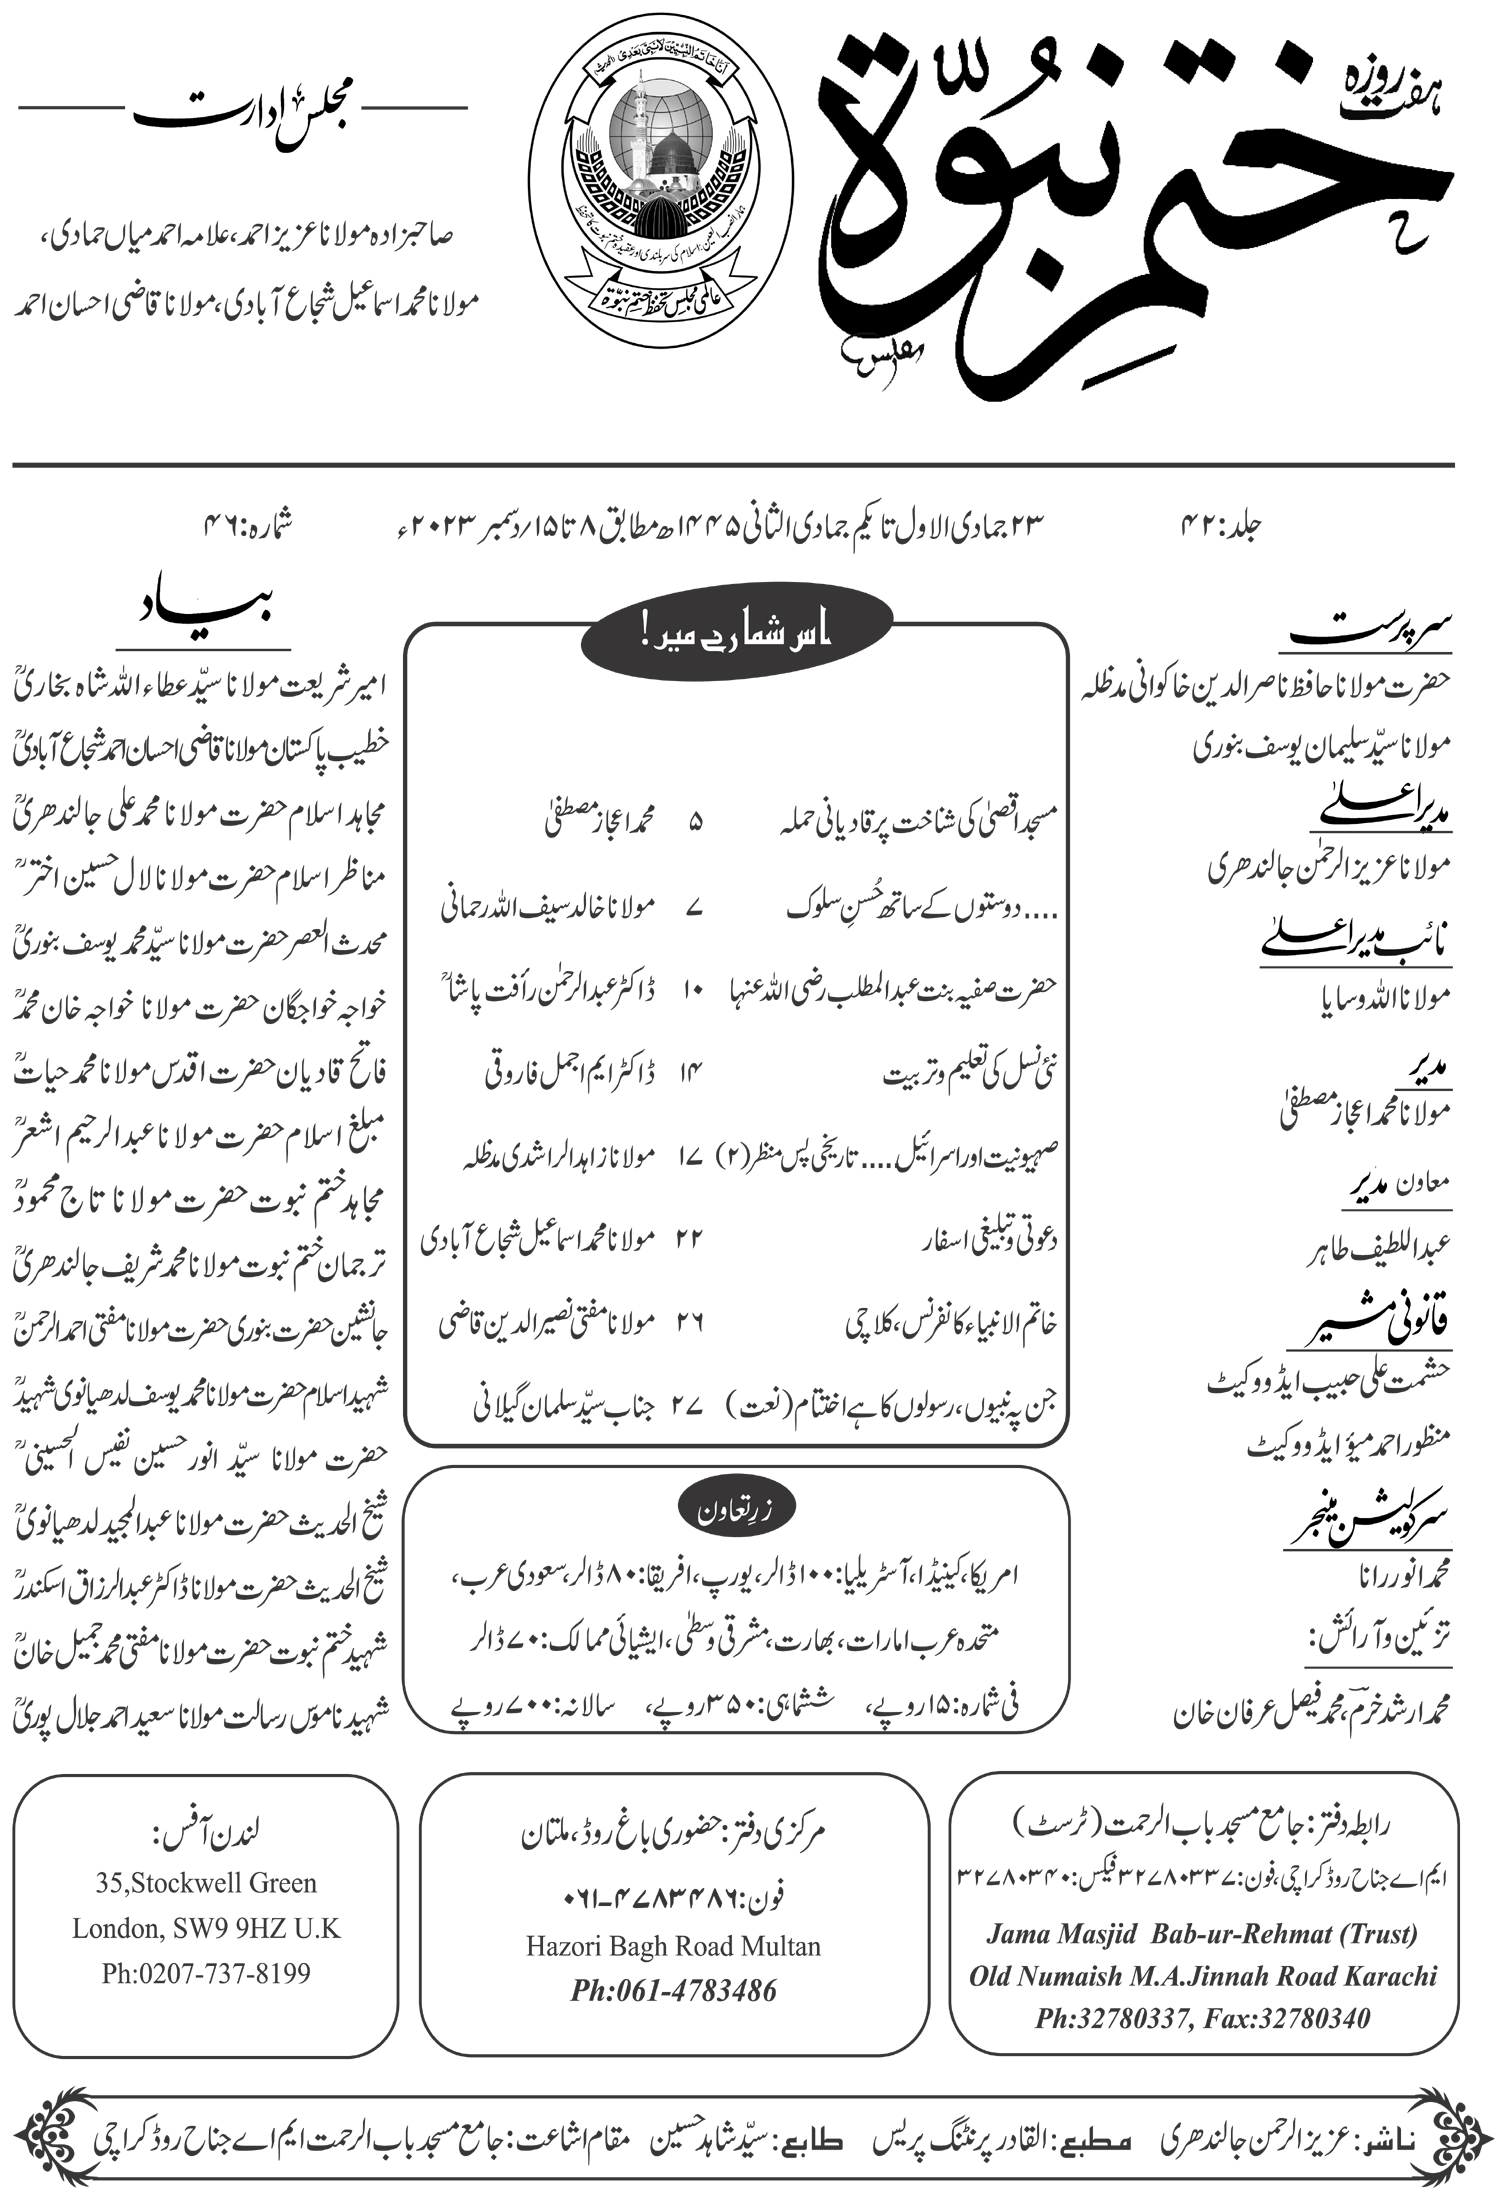 ہفت روزہ
ختم نبوۃ
مجلس ادارت
صاحبزادہ مولانا عزیز احمد، علامہ احمد میاں حمادی،
مولانا محمد اسماعیل شجاع آبادی، مولانا قاضی احسان احمد
انا خاتم النبیین لا نبی بعدی
عالمی مجلس تحفظ ختم نبوۃ
جلد: ۴۲
۲۳ جمادی الاول تا یکم جمادی الثانی ۱۴۴۵ھ مطابق ۸ تا ۱۵/دسمبر ۲۰۲۳ء
شمارہ: ۴۶
سرپرست
حضرت مولانا حافظ ناصر الدین خاکوانی مدظلہ
مولانا سیّد سلیمان یوسف بنوری
مدیر اعلیٰ
مولانا عزیز الرحمٰن جالندھری
نائب مدیر اعلیٰ
مولانا اللہ وسایا
مدیر
مولانا محمد اعجاز مصطفیٰ
معاون مدیر
عبداللطیف طاہر
قانونی مشیر
حشمت علی حبیب ایڈووکیٹ
منظور احمد میؤ ایڈووکیٹ
سرکولیشن منیجر
محمد انور رانا
تزئین و آرائش:
محمد ارشد خرم، محمد فیصل عرفان خان
اس شمارے میں!
مسجد اقصیٰ کی شناخت پر قادیانی حملہ ۵ محمد اعجاز مصطفیٰ
.... دوستوں کے ساتھ حُسنِ سلوک ۷ مولانا خالد سیف اللہ رحمانی
حضرت صفیہ بنت عبدالمطلب رضی اللہ عنہا ۱۰ ڈاکٹر عبدالرحمٰن رأفت پاشاؒ
نئی نسل کی تعلیم و تربیت ۱۴ ڈاکٹر ایم اجمل فاروقی
صہیونیت اور اسرائیل .... تاریخی پس منظر (۲) ۱۷ مولانا زاہد الراشدی مدظلہ
دعوتی و تبلیغی اسفار ۲۲ مولانا محمد اسماعیل شجاع آبادی
خاتم الانبیاء کانفرنس، کلاچی ۲۶ مولانا مفتی نصیر الدین قاضی
جن پہ نبیوں، رسولوں کا ہے اختتام (نعت) ۲۷ جناب سیّد سلمان گیلانی
زرِتعاون
امریکا، کینیڈا، آسٹریلیا: ۱۰۰ ڈالر، یورپ، افریقا: ۸۰ ڈالر، سعودی عرب،
متحدہ عرب امارات، بھارت، مشرقی وسطیٰ، ایشیائی ممالک: ۷۰ ڈالر
فی شمارہ: ۱۵ روپے، ششماہی: ۳۵۰ روپے، سالانہ: ۷۰۰ روپے
بیاد
امیر شریعت مولانا سیّد عطاء اللہ شاہ بخاریؒ
خطیب پاکستان مولانا قاضی احسان احمد شجاع آبادیؒ
مجاہد اسلام حضرت مولانا محمد علی جالندھریؒ
مناظر اسلام حضرت مولانا لال حسین اخترؒ
محدث العصر حضرت مولانا سیّد محمد یوسف بنوریؒ
خواجہ خواجگان حضرت مولانا خواجہ خان محمدؒ
فاتح قادیان حضرت اقدس مولانا محمد حیاتؒ
مبلغ اسلام حضرت مولانا عبدالرحیم اشعرؒ
مجاہد ختم نبوت حضرت مولانا تاج محمودؒ
ترجمان ختم نبوت مولانا محمد شریف جالندھریؒ
جانشین حضرت بنوری حضرت مولانا مفتی احمد الرحمنؒ
شہید اسلام حضرت مولانا محمد یوسف لدھیانوی شہیدؒ
حضرت مولانا سیّد انور حسین نفیس الحسینیؒ
شیخ الحدیث حضرت مولانا عبدالمجید لدھیانویؒ
شیخ الحدیث حضرت مولانا ڈاکٹر عبدالرزاق اسکندرؒ
شہید ختم نبوت حضرت مولانا مفتی محمد جمیل خانؒ
شہید ناموس رسالت مولانا سعید احمد جلال پوریؒ
رابطہ دفتر: جامع مسجد باب الرحمت (ٹرسٹ)
ایم اے جناح روڈ کراچی، فون: ۳۲۷۸۰۳۳۷ فیکس: ۳۲۷۸۰۳۴۰
Jama Masjid Bab-ur-Rehmat (Trust)
Old Numaish M.A.Jinnah Road Karachi
Ph:32780337, Fax:32780340
مرکزی دفتر: حضوری باغ روڈ، ملتان
فون: ۰۶۱-۴۷۸۳۴۸۶
Hazori Bagh Road Multan
Ph:061-4783486
لندن آفس:
35,Stockwell Green
London, SW9 9HZ U.K
Ph:0207-737-8199
ناشر: عزیز الرحمن جالندھری مطبع: القادر پرنٹنگ پریس طابع: سیّد شاہد حسین مقام اشاعت: جامع مسجد باب الرحمت ایم اے جناح روڈ کراچی